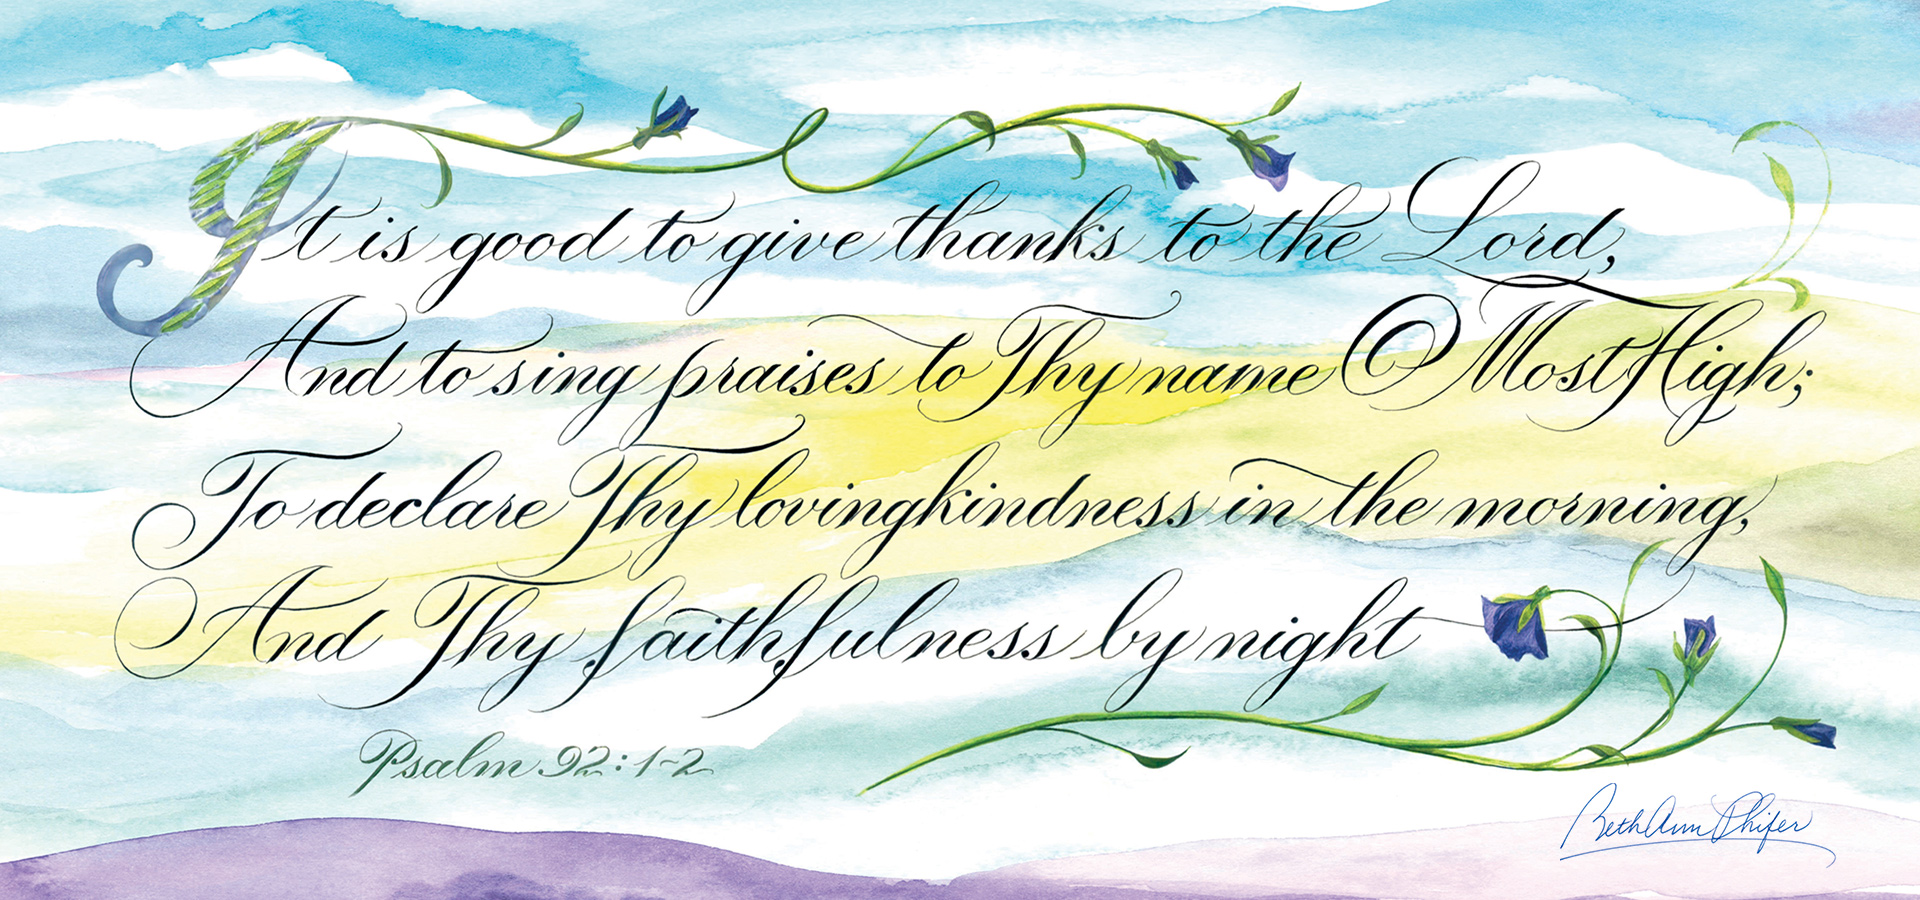 It is good to give thanks to the Lord,
And to sing praises to Thy name O Most High;
To declare Thy lovingkindness in the morning,
And Thy faithfulness by night
Psalm 92:1-2
BethAnn Phifer